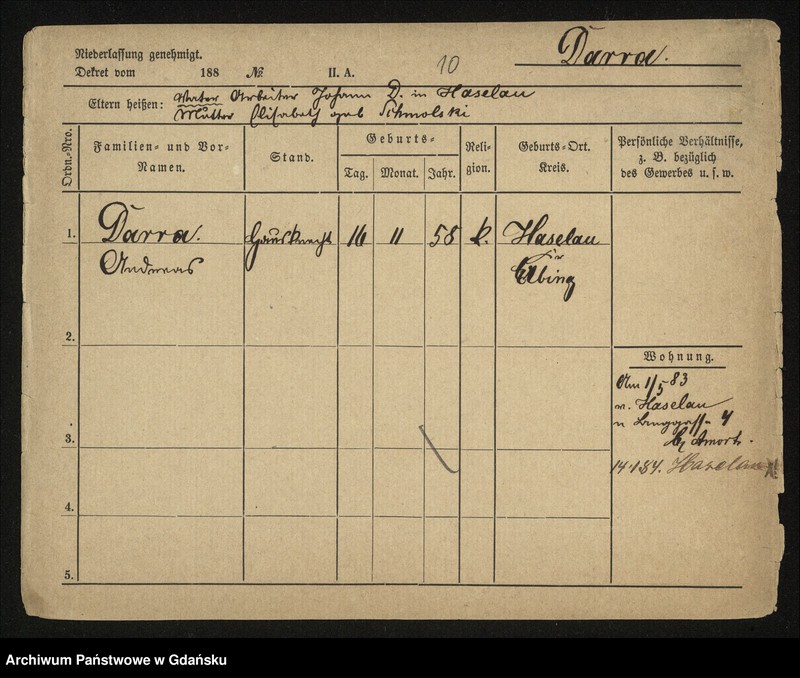 Darra.
Niederlassung genehmigt.
Dekret vom 188 № II. A.
10
Eltern heißen: Vater Arbeiter Johann D. in Haselau
Mutter Elisabeth geb Schmolski
Ordn.-Nro.
Familien- und Vor-Namen.
Stand.
Geburts-
Tag. Monat. Jahr.
Religion.
Geburts-Ort.
Kreis.
Persönliche Verhältnisse,
z. B. bezüglich
des Gewerbes u. s. w.
1. Darra. Hausknecht 16 11 58 k. Haselau
Andreas
Kr
Elbing
2.
Wohnung.
Am 1/5 83
v. Haselau
n Langgasse 4
bei
3.
14.1.84. Haselau
4.
5.
Archiwum Państwowe w Gdańsku